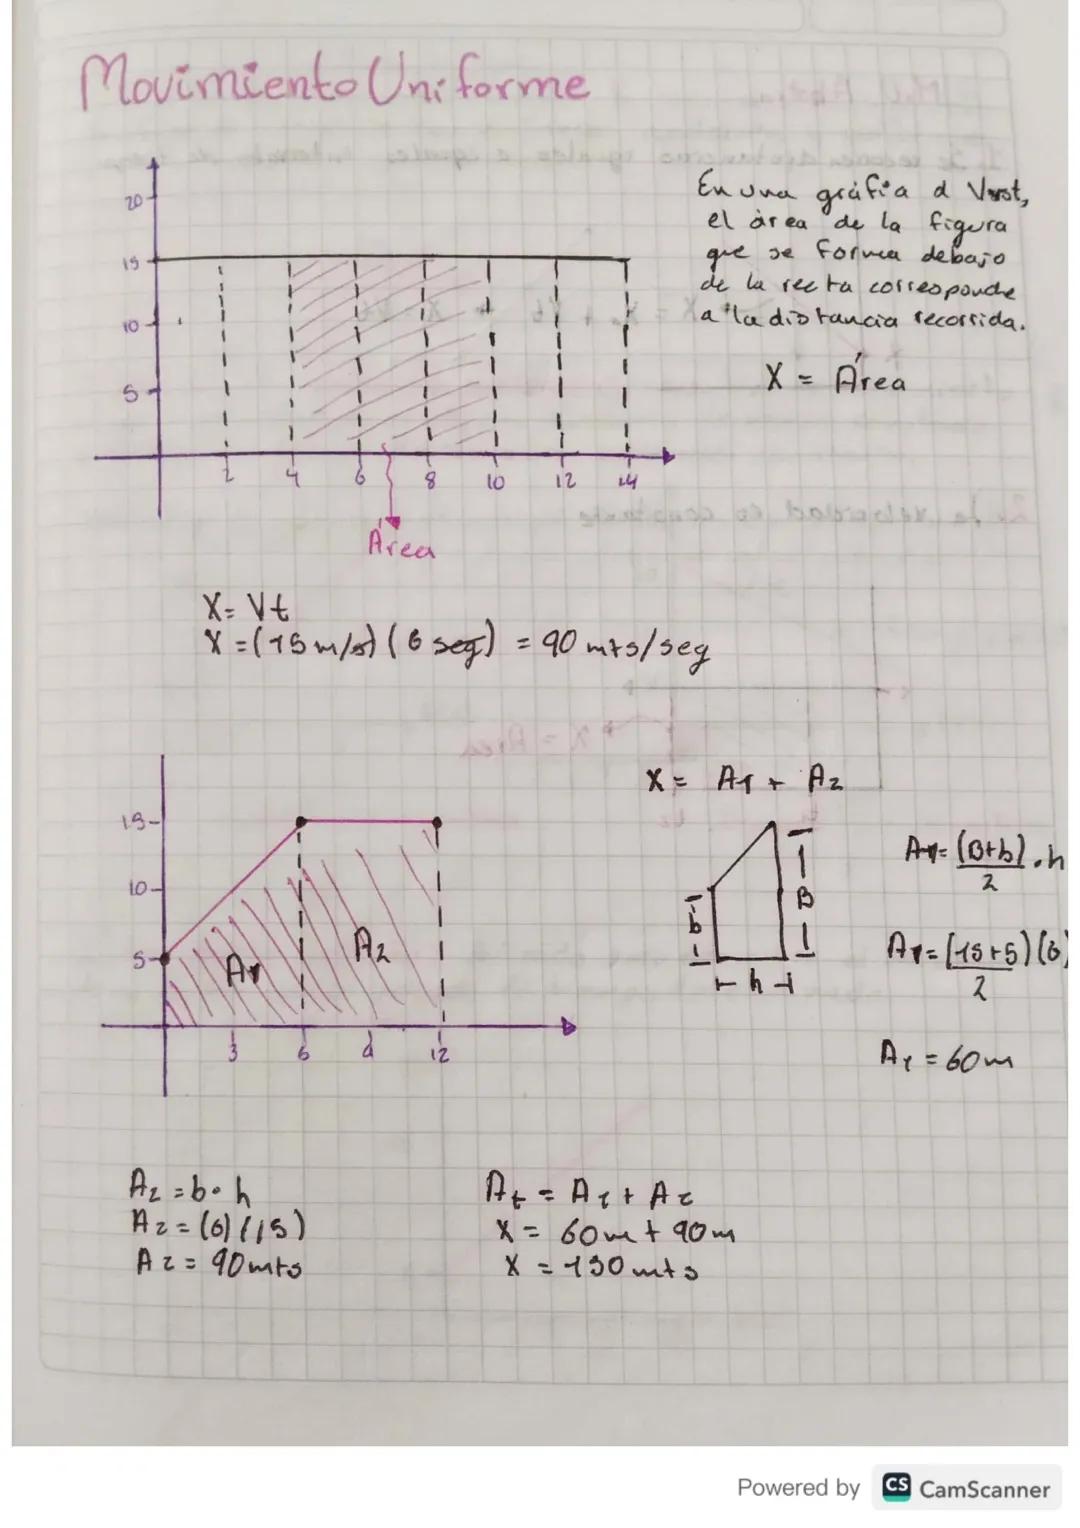 Movimiento Uniforme
20
15
10
5
2 4 6 8 10 12 14
Área
En una gráfia d Vvst,
el área de la figura
que se forma debajo
de la recta corresponde
a la distancia recorrida.
X = Área
X = Vt
X = (15 m/s) (6 seg) = 90 mts/seg
15
10
5
A1
A2
3 6 9 12
X = A1 + A2
b
B
h
A1 = (B+b) . h
2
A1 = (15+5) (6)
2
A1 = 60m
A2 = b • h
A2 = (6) (15)
A2 = 90mts
At = A1 + A2
X = 60m + 90m
X = 150 mts
Powered by CS CamScanner